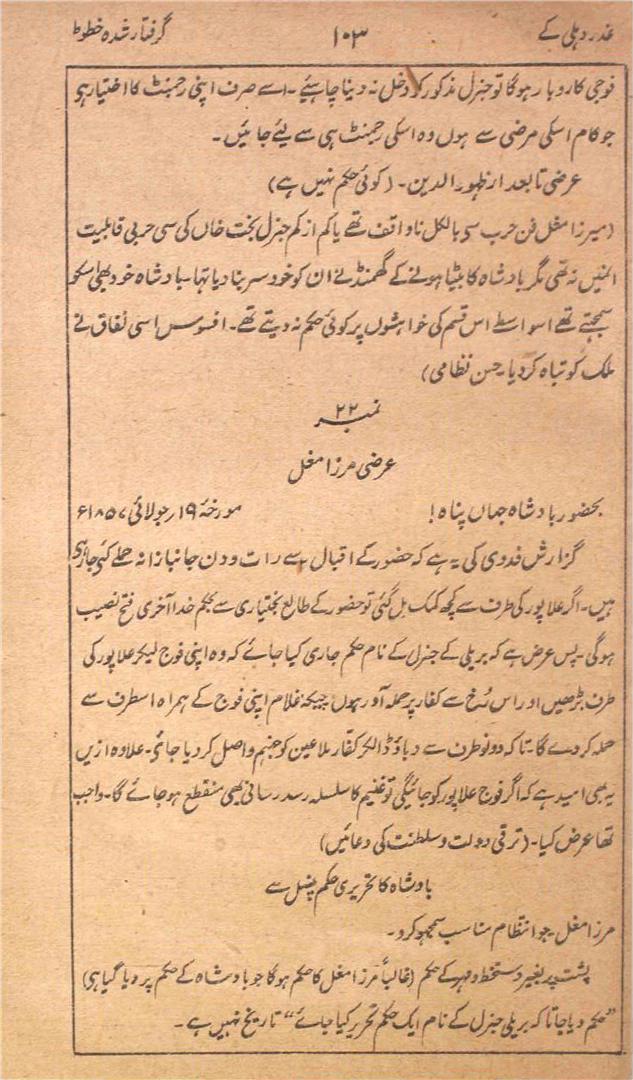 غدر دہلی کے ۱۰۳ گرفتار شدہ خطوط
فوجی کاروبار ہوگا تو جنرل مذکور کو دخل نہ دینا چاہیئے۔ اسے صرف اپنی رجمنٹ کا اختیار ہو
جو کام اسکی مرضی سے ہوں وہ اسکی رجمنٹ ہی سے لیے جائیں۔
عرضی تابعدار ظہور الدین۔ (کوئی حکم نہیں ہے)
(میرزا مغل فن حرب سے بالکل ناواقف تھے یا کم از کم جنرل بخت خاں کی سی حربی قابلیت
انہیں نہ تھی مگر بادشاہ کا بیٹا ہونے کے گھمنڈ نے ان کو خود سر بنا دیا تہا۔ بادشاہ خود بھی اسکو
سمجہتے تھے اسواسطے اس قسم کی خواہشوں پر کوئی حکم نہ دیتے تھے۔ افسوس اسی نفاق نے
ملک کو تباہ کر دیا۔ حسن نظامی)
نمبر ۲۲
عرضی مرزا مغل
بحضور بادشاہ جہاں پناہ! مورخہ ۱۹ جولائی ۱۸۵۷ء
گزارش فدوی کی یہ ہے کہ حضور کے اقبال سے رات و دن جانبازانہ حملے کئے جا رہی
ہیں۔ اگر علاپور کی طرف سے کچھ کمک مل گئی تو حضور کے طالع بختیاری سے بحکم خدا آخری فتح نصیب
ہوگی۔ پس عرض ہے کہ بریلی کے جنرل کے نام حکم جاری کیا جائے کہ وہ اپنی فوج لیکر علاپور کی
طرف بڑھیں اور اس رُخ سے کفار پر حملہ آور ہوں جبکہ غلام اپنی فوج کے ہمراہ اسطرف سے
حملہ کر دے گا۔ تاکہ دونو طرف سے دباؤ ڈالکر کفار ملاعین کو جہنم واصل کر دیا جائے۔ علاوہ ازیں
یہ بھی امید ہے کہ اگر فوج علاپور کو جائیگی تو غنیم کا سلسلہ رسد رسانی بھی منقطع ہو جائے گا۔ واجب
تھا عرض کیا۔ (ترقی دولت و سلطنت کی دعائیں)
بادشاہ کا تحریری حکم پنسل سے
مرزا مغل۔ جو انتظام مناسب سمجھو کرو۔
پشت پر بغیر دستخط و مہر کے حکم (غالباً مرزا مغل کا حکم ہوگا جو بادشاہ کے حکم پر دیا گیا ہی)
"حکم دیا جاتا کہ بریلی جنرل کے نام ایک حکم تحریر کیا جائے" تاریخ نہیں ہے۔